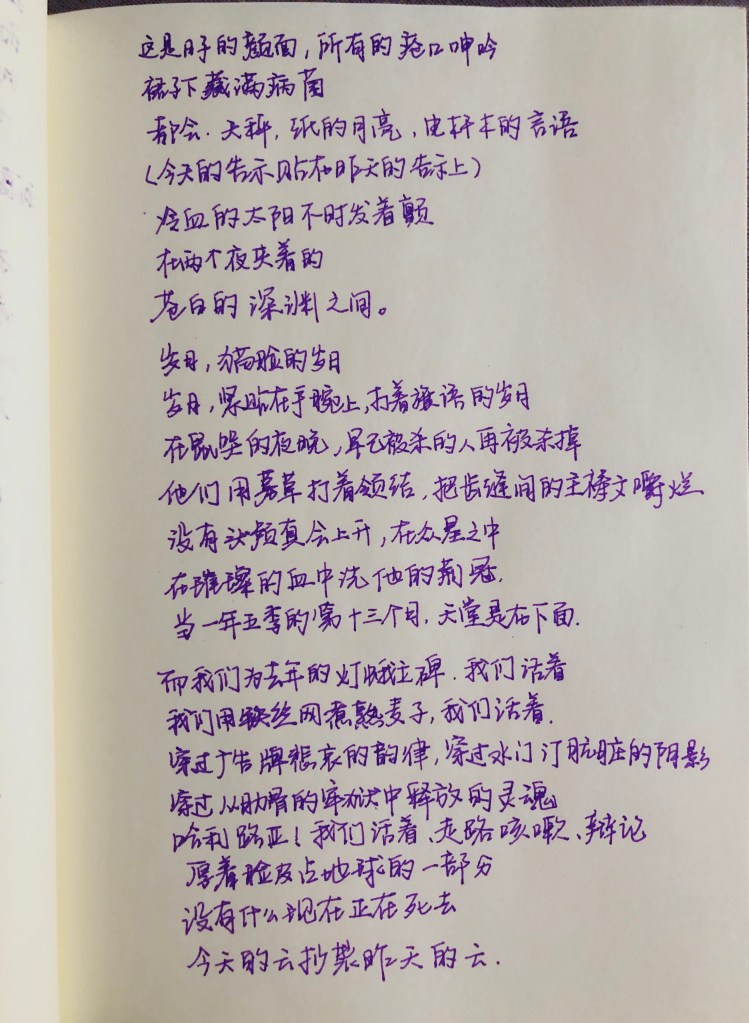 这是日子的颜面，所有的疮口呻吟
裙子下藏满病菌
都会.天秤，纸的月亮，电杆木的言语
（今天的告示贴在昨天的告示上）
冷血的太阳不时发着颤
在两个夜夹着的
苍白的深渊之间。
岁月，猫脸的岁月
岁月，紧贴在手腕上，打着旗语的岁月
在鼠哭的夜晚，早已被杀的人再被杀掉
他们用墓草打着领结，把齿缝间的主祷文嚼烂
没有头颅真会上升，在众星之中
在璀璨的血中洗他的荆冠.
当一年五季的第十三个月，天堂是在下面.
而我们为去年的灯蛾立碑.我们活着
我们用铁丝网煮熟麦子，我们活着.
穿过广告牌悲哀的韵律，穿过水门汀肮脏的阴影
穿过从肋骨的牢狱中释放的灵魂
哈利路亚！我们活着、走路咳嗽、辩论
厚着脸皮占地球的一部分
没有什么现在正在死去
今天的云抄袭昨天的云.